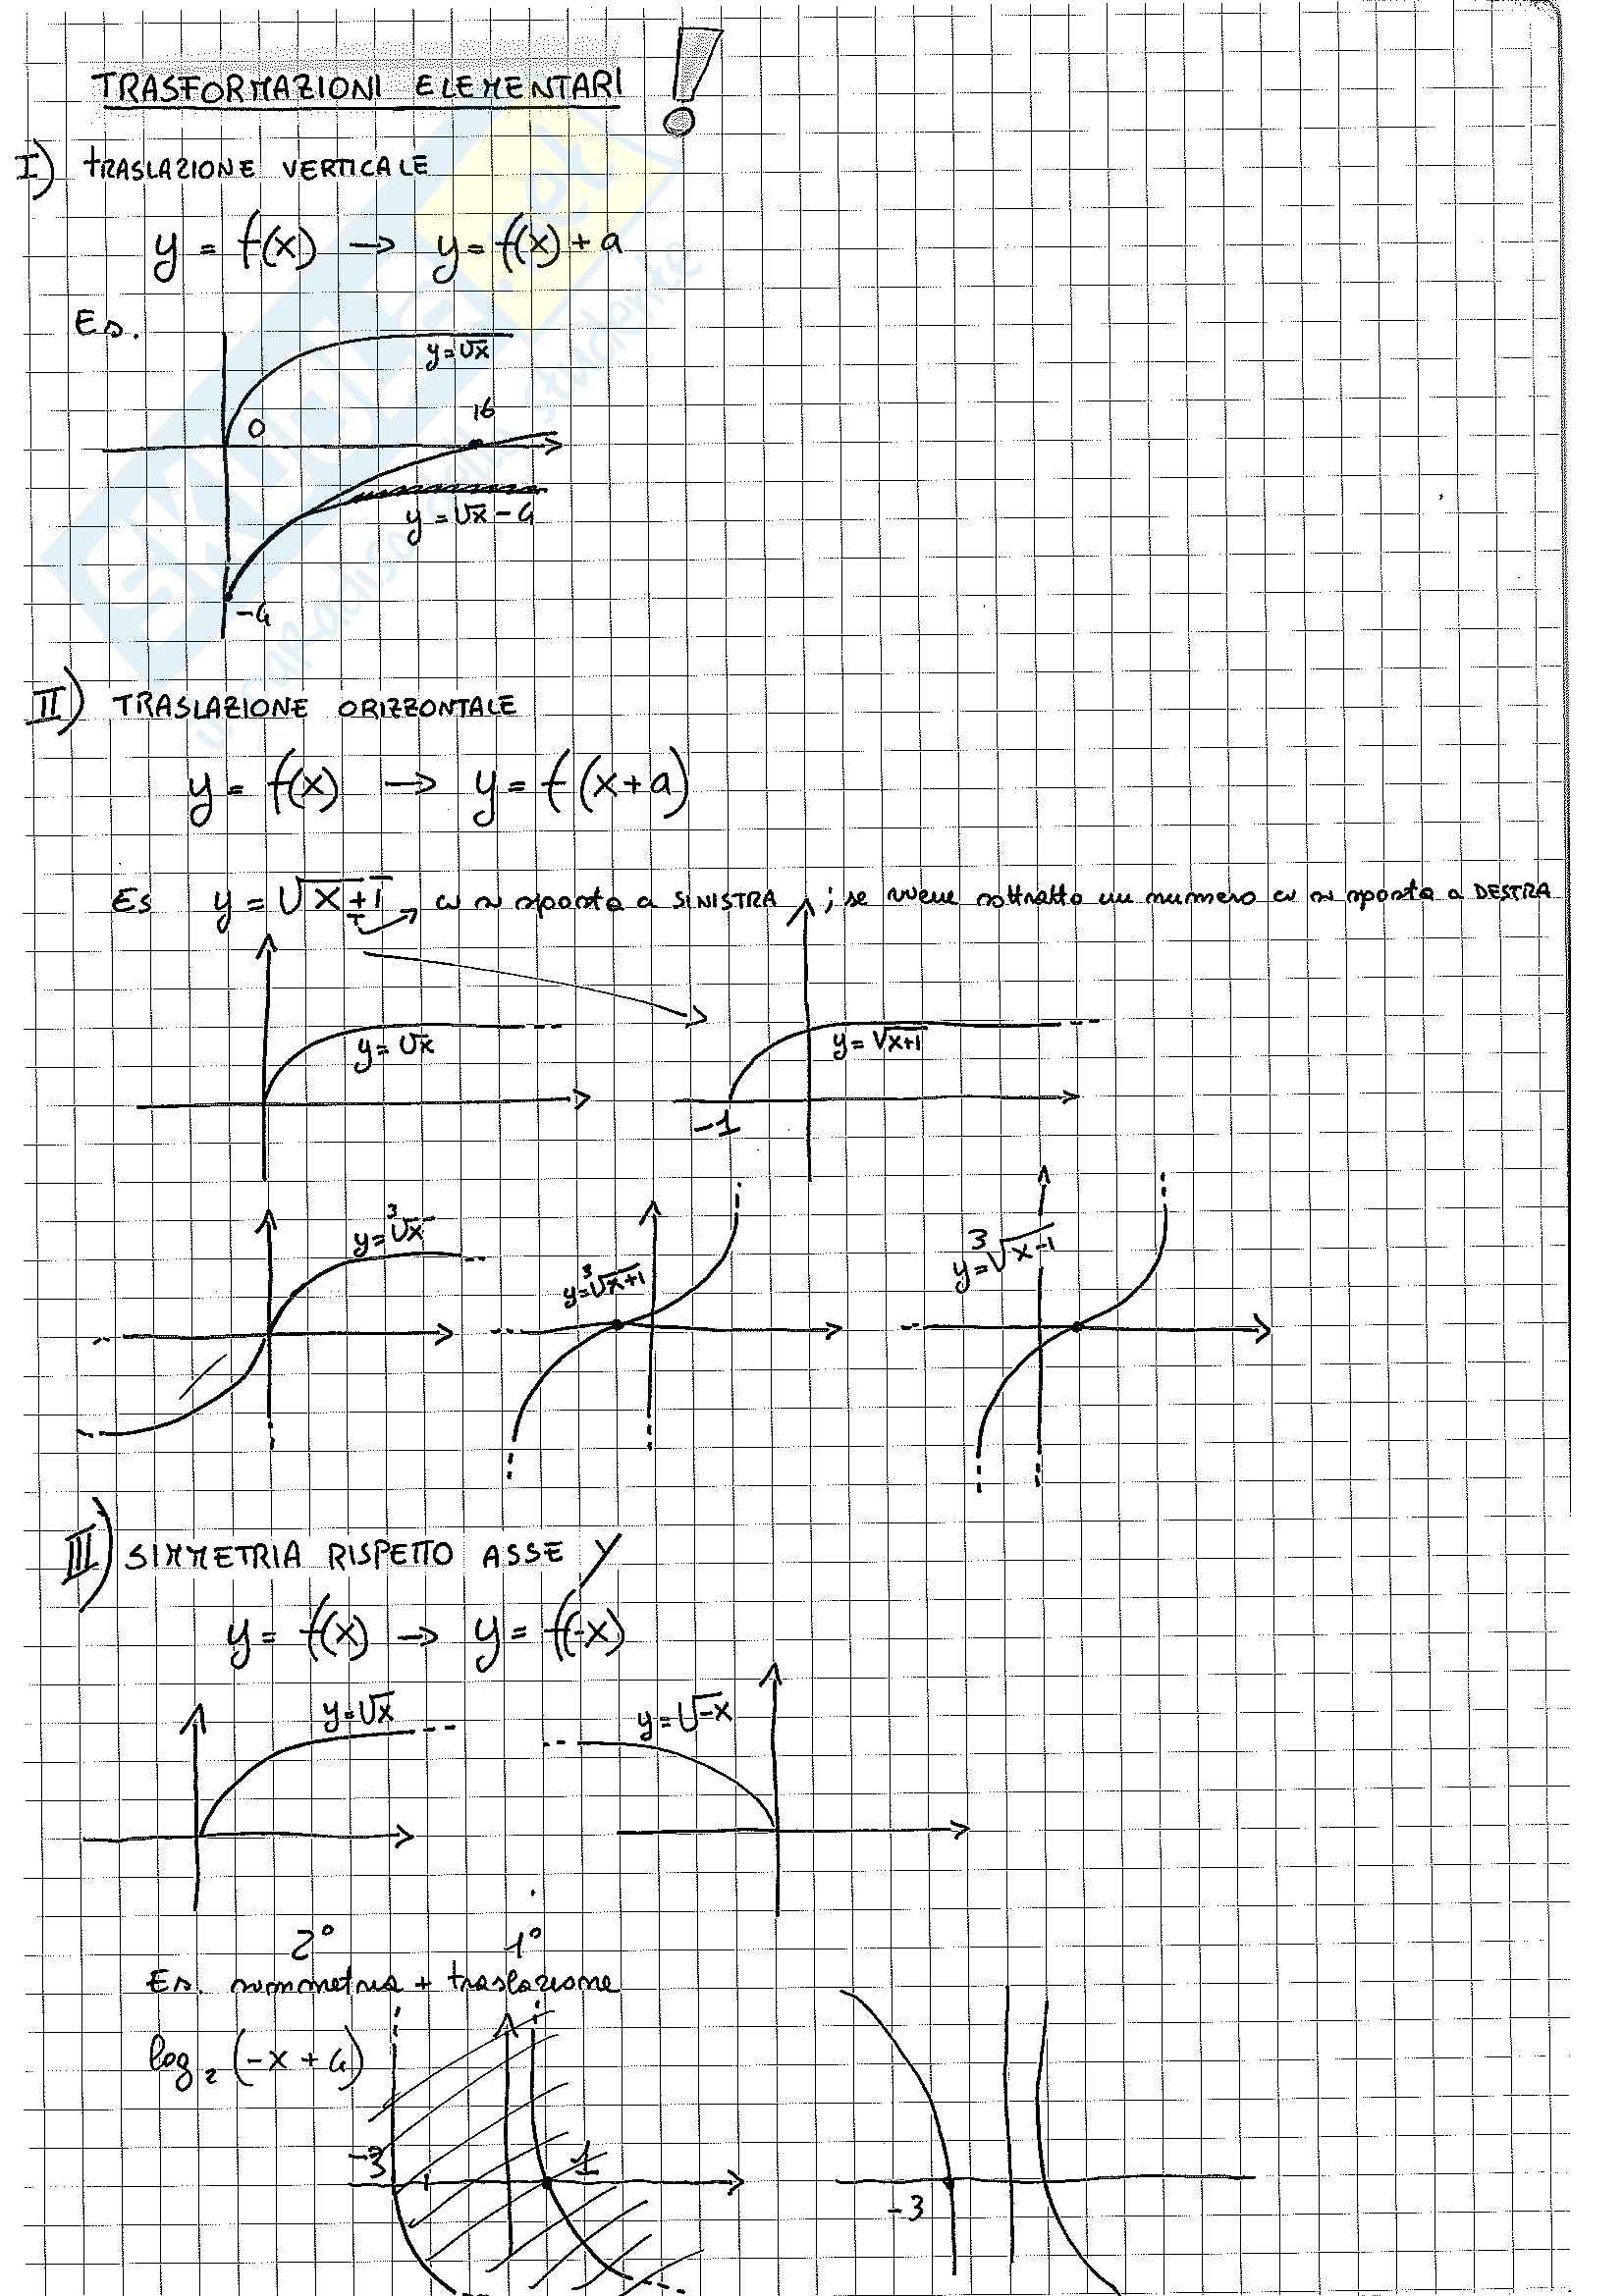 TRASFORMAZIONI ELEMENTARI !
I) TRASLAZIONE VERTICALE
y = f(x) → y = f(x) + a
Es.
y = √x
0
16
y = √x - 4
-4
II) TRASLAZIONE ORIZZONTALE
y = f(x) → y = f(x+a)
Es y = √x+1 → si sposta a SINISTRA ; se viene sottratto un numero si sposta a DESTRA
y = √x
y = √x+1
-1
y = ³√x
y = ³√x+1
y = ³√x-1
III) SIMMETRIA RISPETTO ASSE Y
y = f(x) → y = f(-x)
y = √x
y = √-x
2° 1°
Es. simmetria + traslazione
log₂ (-x + 4)
-3
1
-3